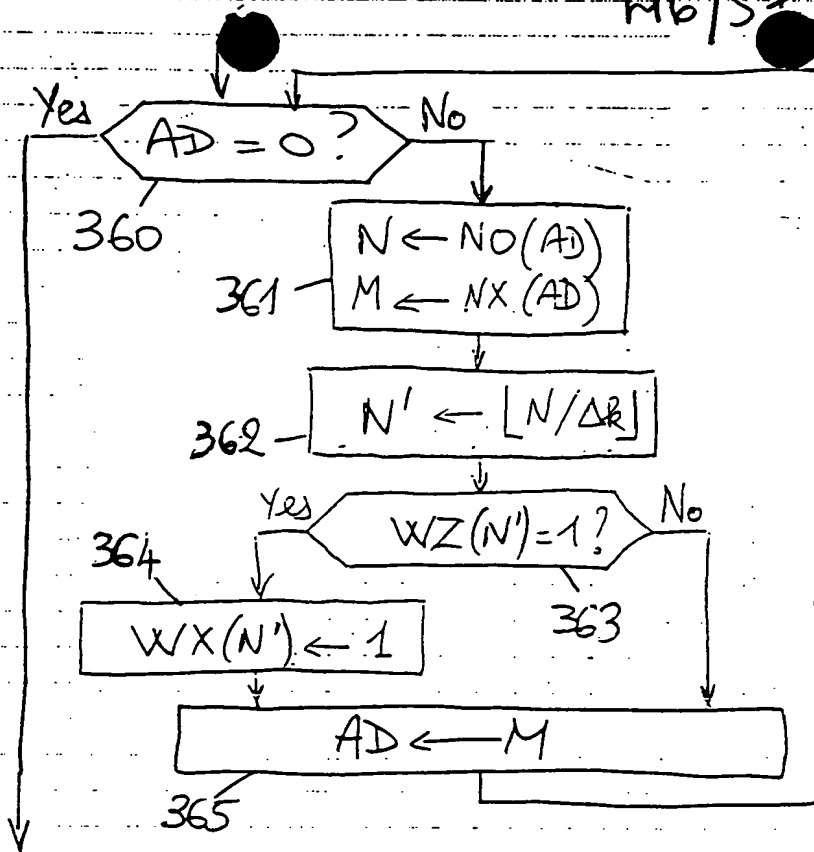 Yes
AD = 0 ?
No
360
N ← NO(AD)
M ← NX(AD)
361
N' ← ⌊N/Δk⌋
362
Yes
WZ(N')=1?
No
364
363
WX(N') ← 1
AD ← M
365